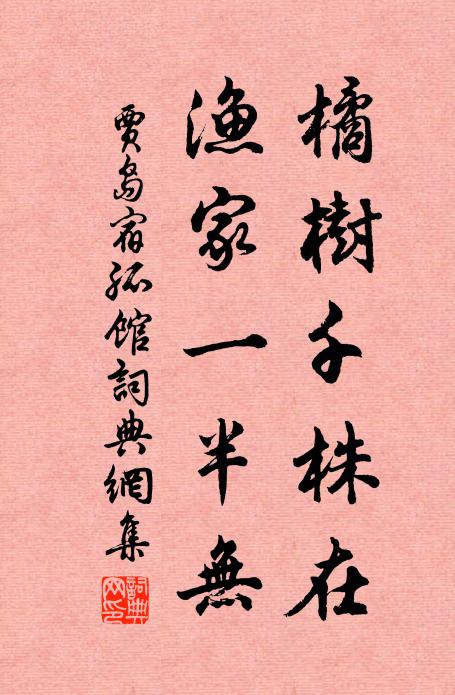 橘樹千株在
漁家一半無
賈島宿孤館詞典網集
詞典
网印